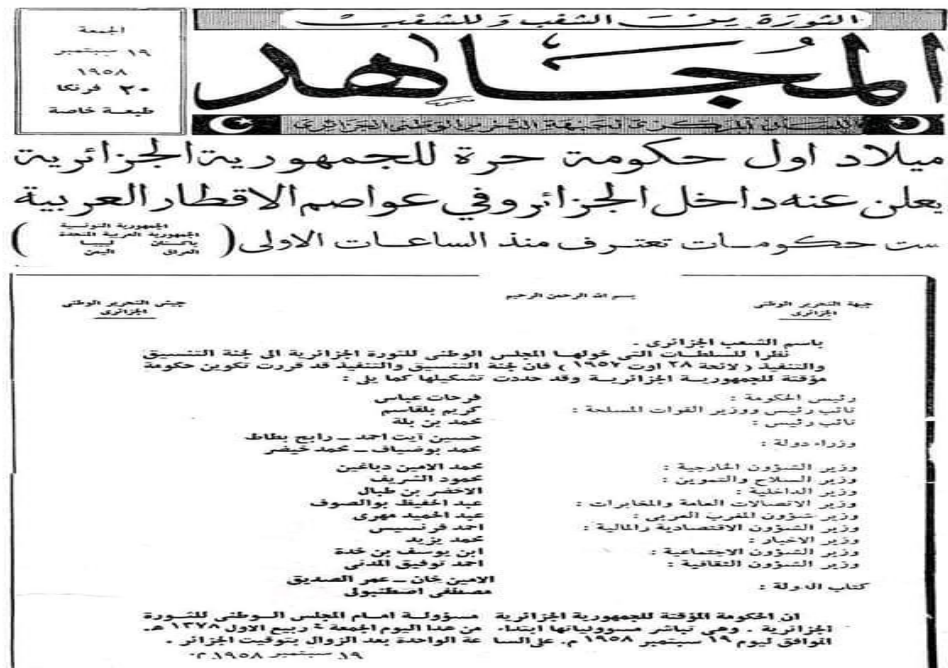 الثورة من الشعب وللشعب
المجاهد
اللسان المركزي لجبهة التحرير الوطني الجزائري
الجمعة
١٩ سبتمبر
١٩٥٨
٣٠ فرنكا
طبعة خاصة
ميلاد اول حكومة حرة للجمهورية الجزائرية
يعلن عنه داخل الجزائر وفي عواصم الاقطار العربية
ست حكومات تعترف منذ الساعات الاولى
الجمهورية التونسية
الجمهورية العربية المتحدة
باكستان ليبيا
العراق اليمن
بسم الله الرحمن الرحيم
جبهة التحرير الوطني
الجزائرى
جيش التحرير الوطني
الجزائرى
باسم الشعب الجزائرى .
نظرا للسلطات التي خولها المجلس الوطني للثورة الجزائرية الى لجنة التنسيق
والتنفيذ ( لائحة ٢٨ اوت ١٩٥٧ ) فان لجنة التنسيق والتنفيذ قد قررت تكوين حكومة
مؤقتة للجمهورية الجزائرية وقد حددت تشكيلها كما يلى :
رئيس الحكومة : فرحات عباس
نائب رئيس ووزير القوات المسلحة : كريم بلقاسم
نائب رئيس : محمد بن بلة
وزراء دولة : حسين آيت احمد ـ رابح بطاط
محمد بوضياف ـ محمد خيضر
وزير الشؤون الخارجية : محمد الامين دباغين
وزير السلاح والتموين : محمود الشريف
وزير الداخلية : الاخضر بن طبال
وزير الاتصالات العامة والمخابرات : عبد الحفيظ بوالصوف
وزير شؤون المغرب العربى : عبد الحميد مهرى
وزير الشؤون الاقتصادية والمالية : احمد فرنسيس
وزير الاخبار : محمد يزيد
وزير الشؤون الاجتماعية : ابن يوسف بن خدة
وزير الشؤون الثقافية : احمد توفيق المدنى
كتاب الدولة : الامين خان ـ عمر الصديق
مصطفى اصطنبولى
ان الحكومة المؤقتة للجمهورية الجزائرية مسؤولة امام المجلس الوطنى للثورة
الجزائرية . وهى تباشر مسوولياتها ابتداء من هذا اليوم الجمعة ٤ ربيع الاول ١٣٧٨ هـ.
الموافق ليوم ١٩ سبتمبر ١٩٥٨ م. على السا عة الواحدة بعد الزوال بتوقيت الجزائر .
١٩ سبتمبر ١٩٥٨ م.